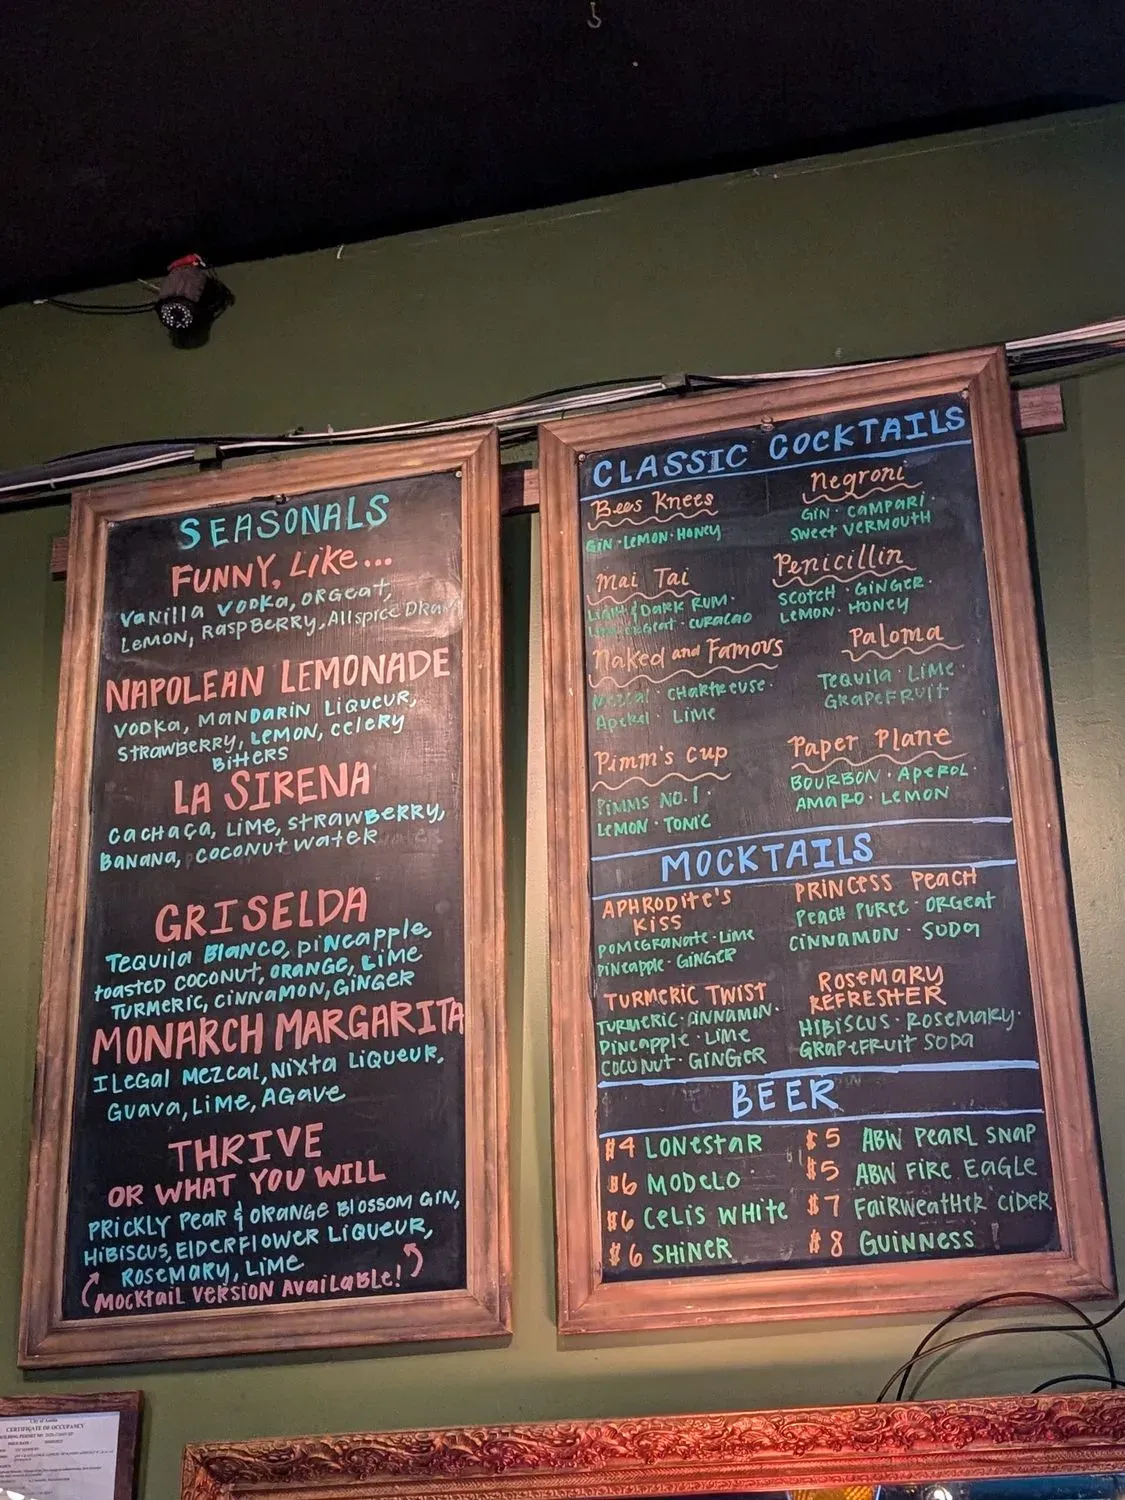 SEASONALS
FUNNY, Like...
Vanilla Vodka, Orgeat,
Lemon, Raspberry, Allspice Dram
NAPOLEAN LEMONADE
Vodka, Mandarin Liqueur,
Strawberry, Lemon, Celery
Bitters
LA SIRENA
Cachaça, Lime, Strawberry,
Banana, Coconut Water
GRISELDA
Tequila Blanco, Pineapple,
Toasted Coconut, Orange, Lime
Turmeric, Cinnamon, Ginger
MONARCH MARGARITA
Ilegal Mezcal, Nixta Liqueur,
Guava, Lime, Agave
THRIVE
OR WHAT YOU WILL
Prickly Pear & Orange Blossom Gin,
Hibiscus, Elderflower Liqueur,
Rosemary, Lime
(Mocktail Version Available!)
CLASSIC COCKTAILS
Bees Knees
Gin · Lemon · Honey
Negroni
Gin · Campari ·
Sweet Vermouth
Mai Tai
Light & Dark Rum ·
Lime · Orgeat · Curacao
Penicillin
Scotch · Ginger ·
Lemon · Honey
Naked and Famous
Mezcal · Chartreuse ·
Aperol · Lime
Paloma
Tequila · Lime ·
Grapefruit
Pimm's Cup
Pimms No. 1 ·
Lemon · Tonic
Paper Plane
Bourbon · Aperol ·
Amaro · Lemon
MOCKTAILS
APHRODITE'S
KISS
Pomegranate · Lime
Pineapple · Ginger
PRINCESS PEACH
Peach Puree · Orgeat
Cinnamon · Soda
TURMERIC TWIST
Turmeric · Cinnamon ·
Pineapple · Lime
Coconut · Ginger
ROSEMARY
REFRESHER
Hibiscus · Rosemary ·
Grapefruit Soda
BEER
$4 Lonestar
$6 Modelo
$6 Celis White
$6 Shiner
$5 ABW Pearl Snap
$5 ABW Fire Eagle
$7 Fairweather Cider
$8 Guinness
City of Austin
CERTIFICATE OF OCCUPANCY